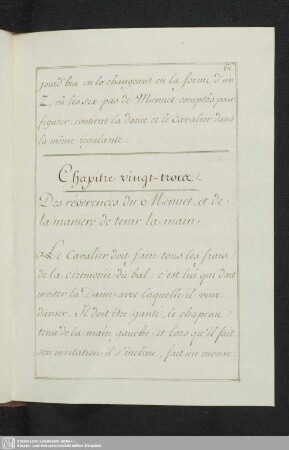 61
jourd'hui en le changeant en la forme d'un
Z, où les six pas de Menuet comptés pour
figurer, contient la dame et le Cavalier dans
la même régularité.
Chapitre vingt-trois.
Des révérences du Menuet, et de
la maniere de tenir la main.
Le Cavalier doit faire tous les fraix
de la cérémonie du bal: c'est lui qui doit
inviter la Dame avec laquelle il veut
danser. Il doit être ganté, le chapeau
tenu de la main gauche, et lors qu'il fait
son invitation, il s'incline, fait un mouve-